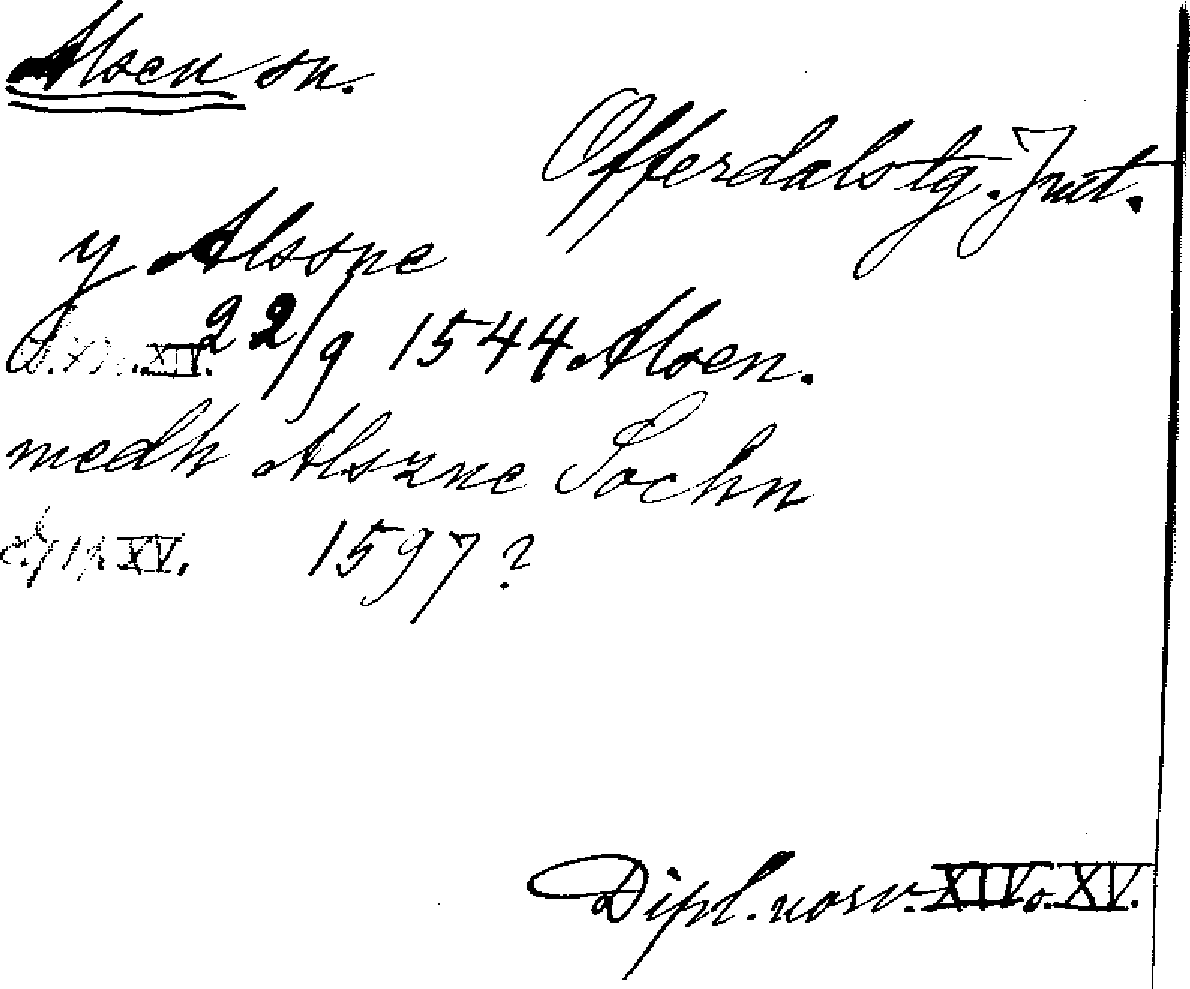 Alsen sn.
Offerdals tg. Jmt.
y Alssne
XIV. 22/9 1544 Alsen.
medh Alszne Sochn
XV. 1597?
Dipl. norv. XIV o. XV.